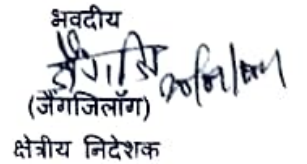 भवदीय
(जैंगजिलॉंग)
क्षेत्रीय निदेशक